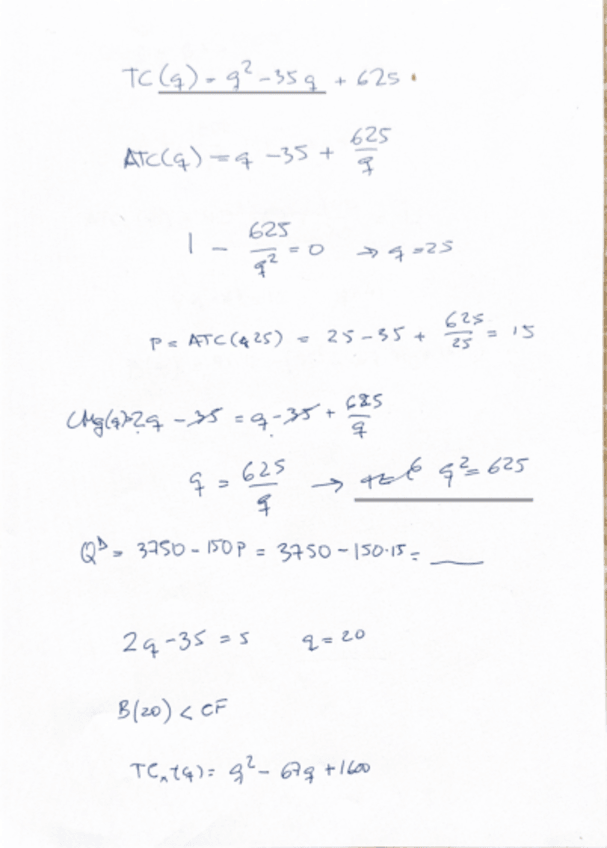 TC(q) = q² - 35q + 625
ATC(q) = q - 35 + 625/q
1 - 625/q² = 0 → q = 25
P = ATC(q25) = 25 - 35 + 625/25 = 15
CMg(q)=2q - 35 = q - 35 + 625/q
q = 625/q → q² = 625
Qᴰ = 3750 - 150P = 3750 - 150·15 = ___
2q - 35 = 5 q = 20
B(20) < CF
TC (q) = q² - 67q + 1600